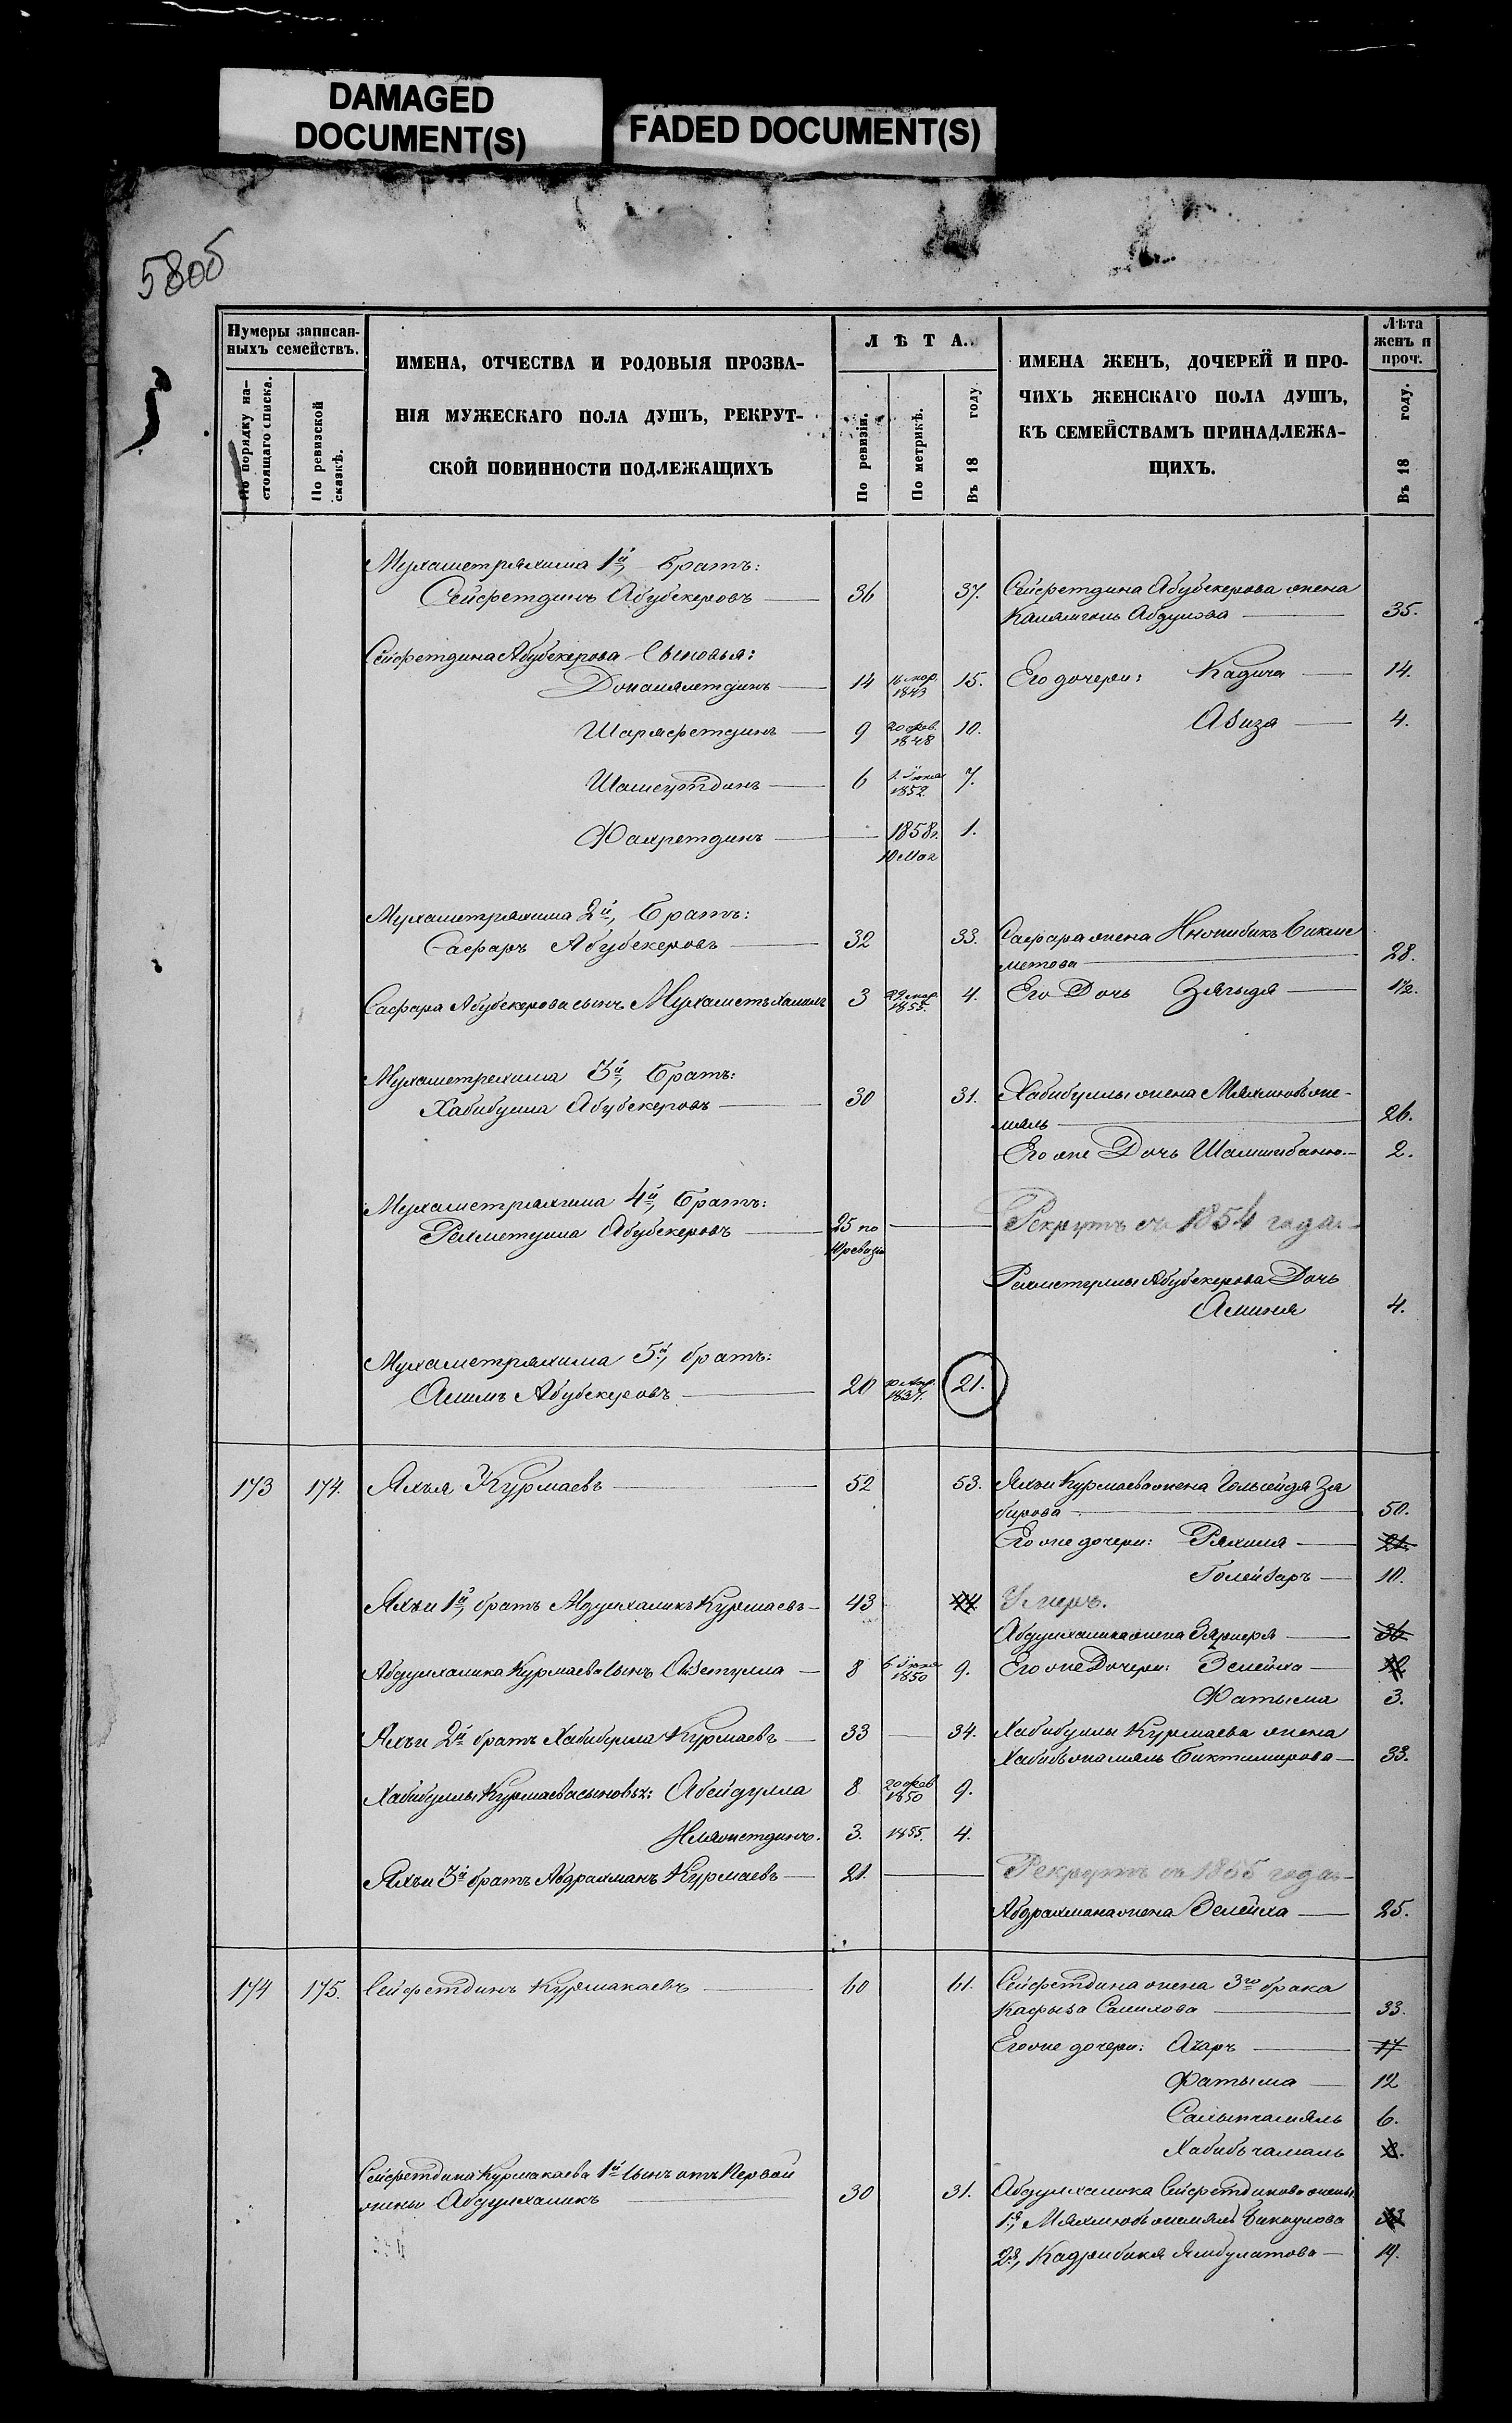 DAMAGED
DOCUMENT(S)
FADED DOCUMENT(S)
580б
Нумеры записан-
ныхъ семействъ.
По порядку на-
стоящаго списка.
По ревизской
сказкѣ.
ИМЕНА, ОТЧЕСТВА И РОДОВЫЯ ПРОЗВА-
НІЯ МУЖЕСКАГО ПОЛА ДУШЪ, РЕКРУТ-
СКОЙ ПОВИННОСТИ ПОДЛЕЖАЩИХЪ
ЛѢТА.
По ревизіи.
По метрикѣ.
Въ 18 году.
ИМЕНА ЖЕНЪ, ДОЧЕРЕЙ И ПРО-
ЧИХЪ ЖЕНСКАГО ПОЛА ДУШЪ,
КЪ СЕМЕЙСТВАМЪ ПРИНАДЛЕЖА-
ЩИХЪ.
Лѣта
женъ и
проч.
Въ 18 году.
Мухаметряхима 1й, братъ:
Сейфетдинъ Абубекеровъ 36 37. Сейфетдина Абубекерова жена
Абдулова 35.
Сейфетдина Абубекерова Сыновья:
14 1843 15. Его дочери: Кадича 14.
Шаряфетдинъ 9 20 фев. 1848 10. Авиза 4.
6 1852 7.
Фахретдинъ 1858г. 1.
10 Мая
Мухаметряхима 2й, братъ:
Сафаръ Абубекеровъ 32 33. Сафара жена Бикме
метова 28.
Сафара Абубекерова сынъ Мухаметъ 3 1855. 4. Его Дочь Зягыдя 1/2.
Мухаметрехима 3й, братъ:
Хабибулла Абубекеровъ 30 31. Хабибуллы жена Мяхлюбъже-
маль 26.
Его же Дочь Шамшибаню. 2.
Мухаметряхима 4й, братъ:
Рахметулла Абубекеровъ 25 по Рекрутъ съ 1854 года.
10 ревизіи
Рахметуллы Абубекерова Дочь
Аминя 4.
Мухаметряхима 5й, братъ:
Алимъ Абубекеровъ 20 1837. 21.
173 174. Яхъя Курмаевъ 52 53. Яхъи Курмаева жена За
бирова 50.
Его же дочери: Ряхиля 21.
Голейзаръ 10.
Яхъи 1й, братъ Абдулхаликъ Курмаевъ 43 44 Умеръ.
Абдулхалика жена 36
Абдулхалика Курмаева Сынъ Айзетулла 8 1850 9. Его же Дочери: Зелейха
Фатыма 3.
Яхъи 2й братъ Хабибулла Курмаевъ 33 34. Хабибуллы Курмаева жена
Хабибъжамаль Биктимирова 33.
Хабибуллы Курмаева сыновья: Абейдулла 8 20 фев 1850 9.
3. 1855. 4.
Яхъи 3й братъ Абдрахманъ Курмаевъ 21. Рекрутъ съ 1855 года
Абдрахмана жена Зелейха 25.
174 175. Сейфетдинъ Курмакаевъ 60 61. Сейфетдина жена 3го брака
Кафыза Салихова 33.
Его же дочери: Ачаръ 17
Фатыма 12
6.
Хабибъ чамаль
Сейфетдина Курмакаева 1й Сынъ отъ Первой
жены Абдулхаликъ 30 31. Абдулхалика Сейфетдинова жены:
1я, Мяхлюбъ жемялъ Бикулова 33
2я, Кадрибикя Ямбулатова 19.